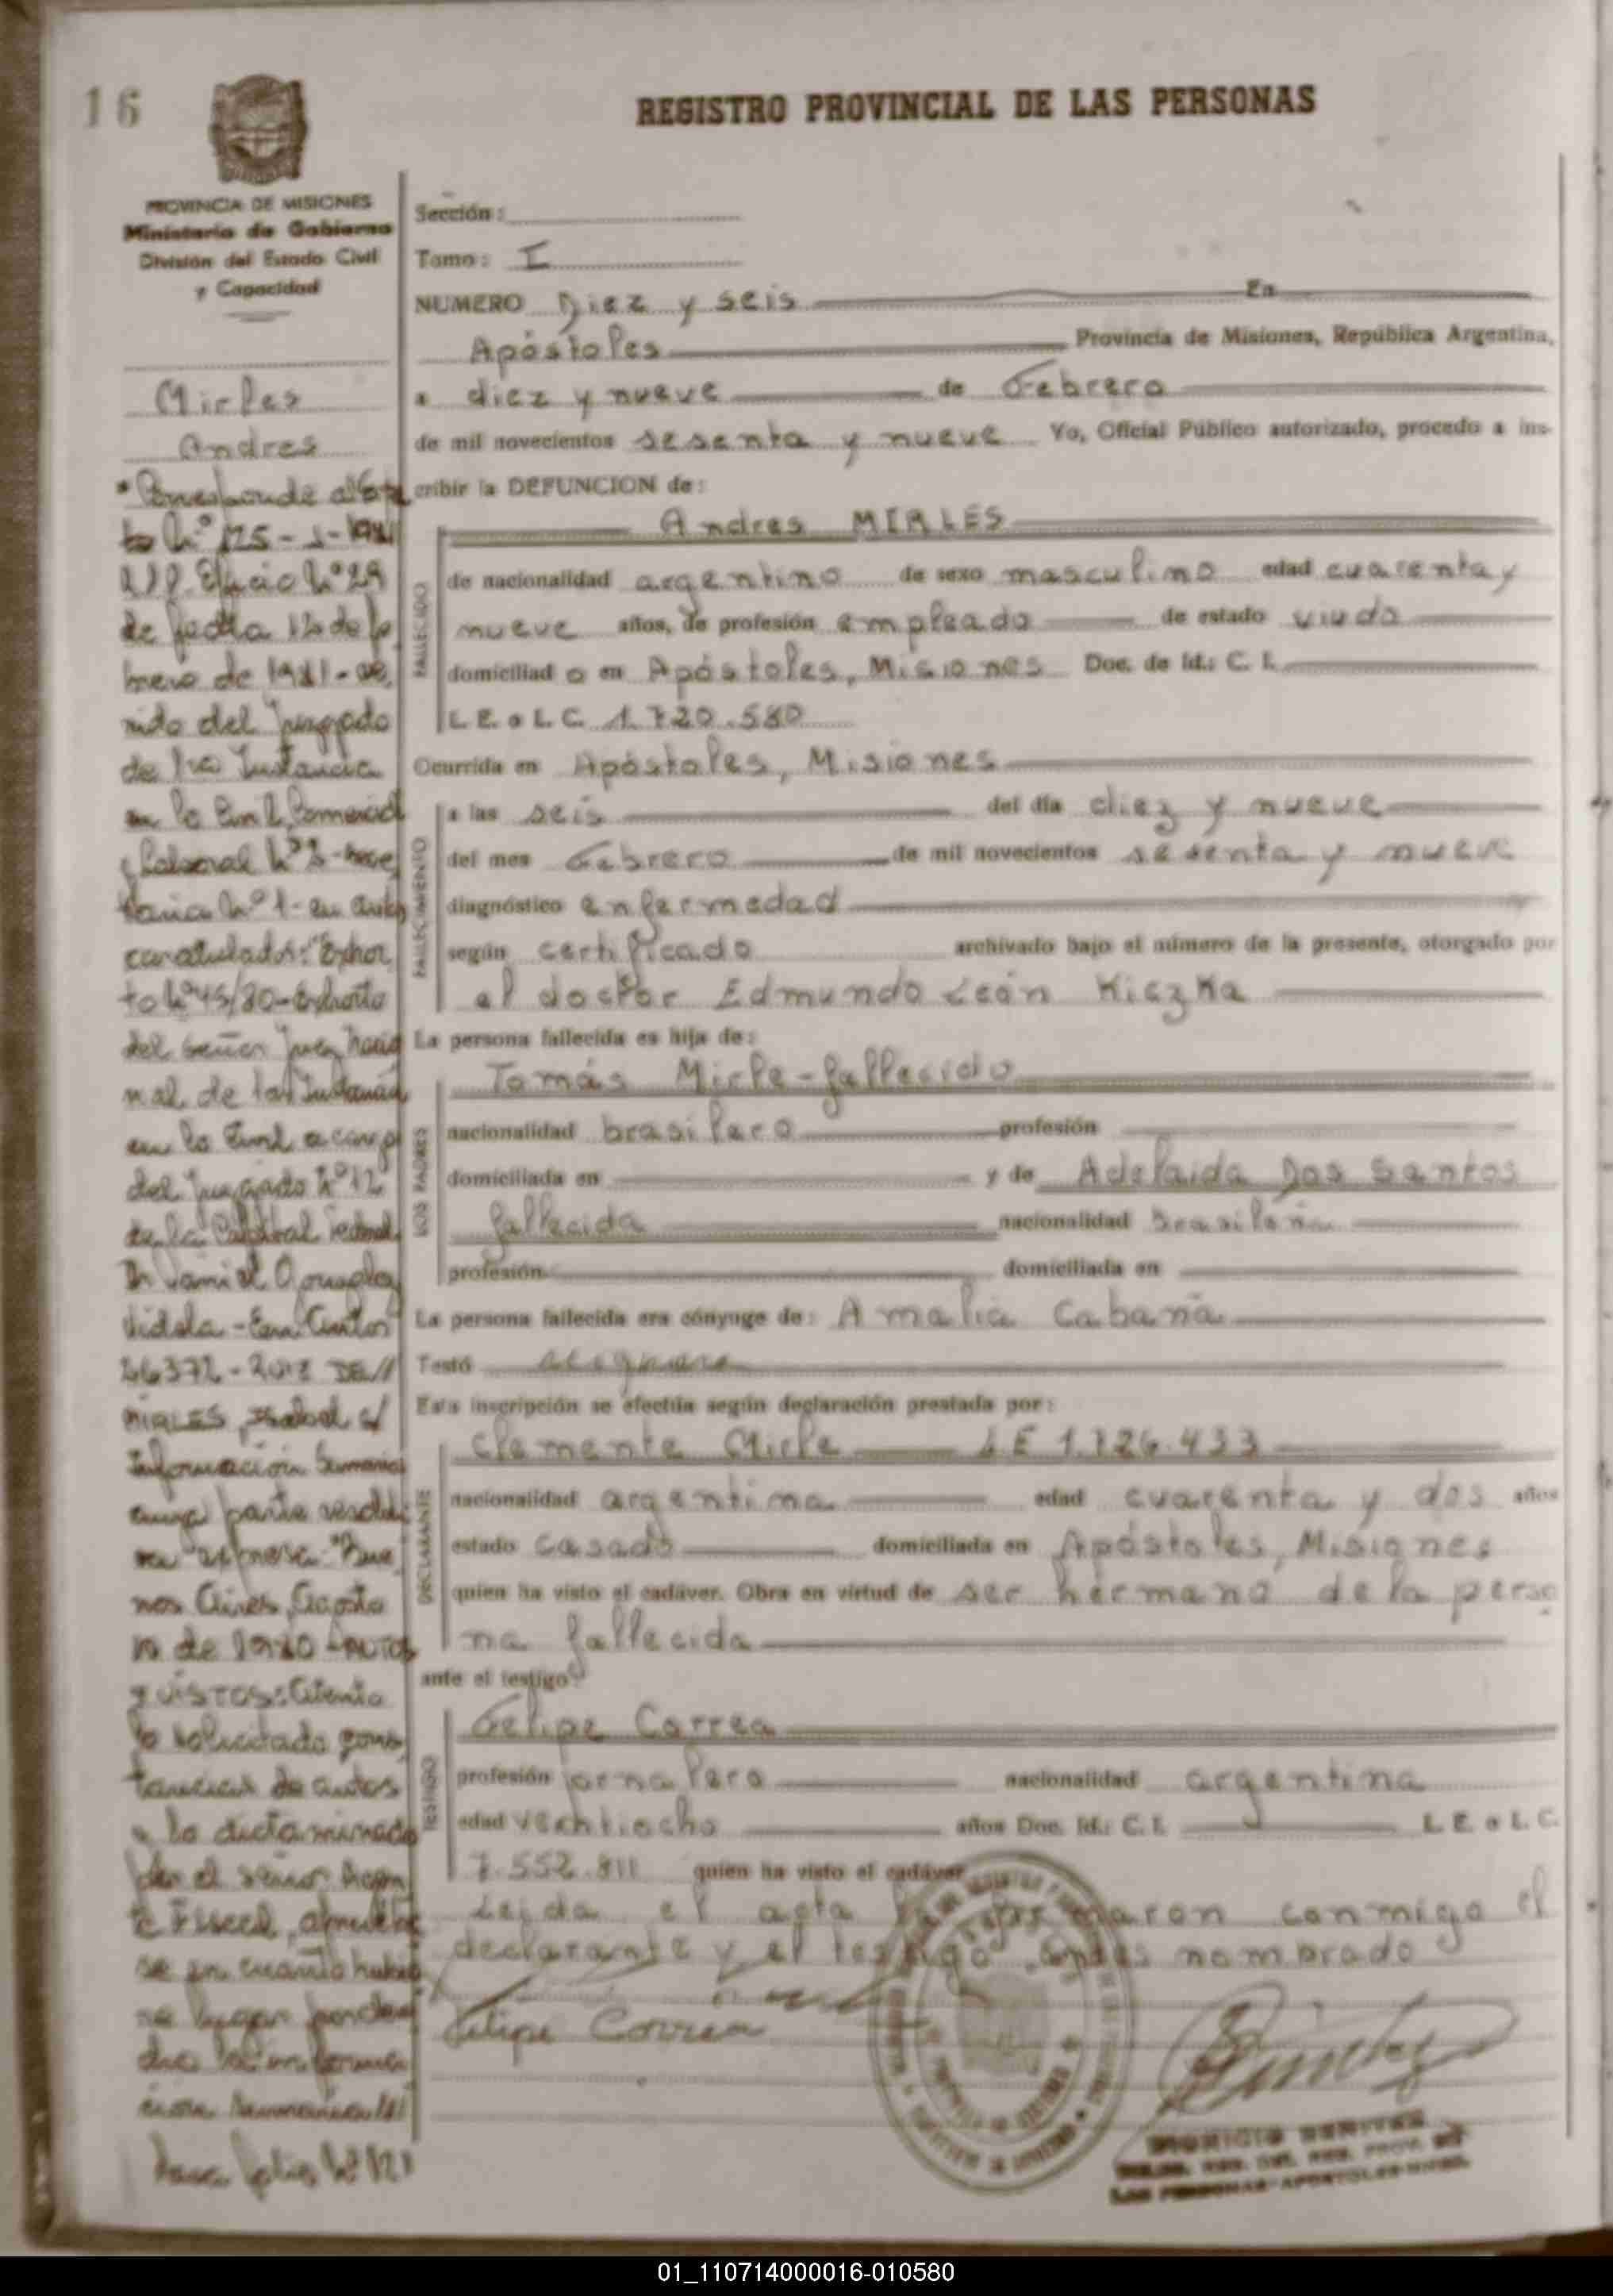 16
REGISTRO PROVINCIAL DE LAS PERSONAS
PROVINCIA DE MISIONES
Ministerio de Gobierno
División del Estado Civil
y Capacidad
Mirles
Andres
Corresponde
to Nº 175 - 1 - 1981
Oficio Nº 29
de fecha 12 de fe
brero de 1981 -
nido del Juzgado
de 1ra Instancia
en lo Civil, Comercial
y Laboral Nº 2 -
taria Nº 1 - en autos
caratulados: "Exhor
to Nº 45/80 - Exhorto
del señor Juez Nacio
nal de 1a Instancia
en lo Civil a cargo
del Juzgado Nº 12
de la Capital Federal
Dr
Videla - Autos
MIRLES, Isabel s/
Información Sumaria
cuya parte resoluti
va expresa: "Bue
nos Aires, Agosto
de 1980 - AUTOS
y VISTOS: Atento
lo solicitado, cons
tancias de autos
y lo dictaminado
por el señor Agen
te Fiscal, apruébe
se en cuanto hubie
re lugar por dere
cho la informa
ción sumaria
Sección:
Tomo: I
NUMERO Diez y seis En
Apóstoles Provincia de Misiones, República Argentina,
a diez y nueve de Febrero
de mil novecientos sesenta y nueve Yo, Oficial Público autorizado, procedo a ins-
cribir la DEFUNCION de:
Andres MIRLES
FALLECIDO
de nacionalidad argentino de sexo masculino edad cuarenta y
nueve años, de profesión empleado de estado viudo
domiciliad o en Apóstoles, Misiones Doc. de Id.: C. I.
L. E. o L. C. 1.720.580
Ocurrida en Apóstoles, Misiones
FALLECIMIENTO
a las seis del día diez y nueve
del mes Febrero de mil novecientos sesenta y nueve
diagnóstico enfermedad
según certificado archivado bajo el número de la presente, otorgado por
el doctor Edmundo León Kiczka
La persona fallecida es hija de:
LOS PADRES
Tomás Mirle - fallecido
nacionalidad brasilero profesión
domiciliada en y de Adelaida Dos Santos
fallecida nacionalidad brasileña
profesión domiciliada en
La persona fallecida era cónyuge de: Amalia Cabaña
Testó
Esta inscripción se efectúa según declaración prestada por:
DECLARANTE
Clemente Mirle L E 1.726.433
nacionalidad argentina edad cuarenta y dos años
estado casado domiciliada en Apóstoles, Misiones
quien ha visto el cadáver. Obra en virtud de ser hermano de la perso
na fallecida
ante el testigo:
TESTIGO
Felipe Correa
profesión jornalero nacionalidad argentina
edad veintiocho años Doc. Id.: C. I. L. E. o L. C.
7.552.811 quien ha visto el cadáver
Leida el acta la firmaron conmigo el
declarante y el testigo antes nombrado
Felipe Correa
DIONICIO BENITEZ
LAS PERSONAS - APOSTOLES
01_110714000016-010580